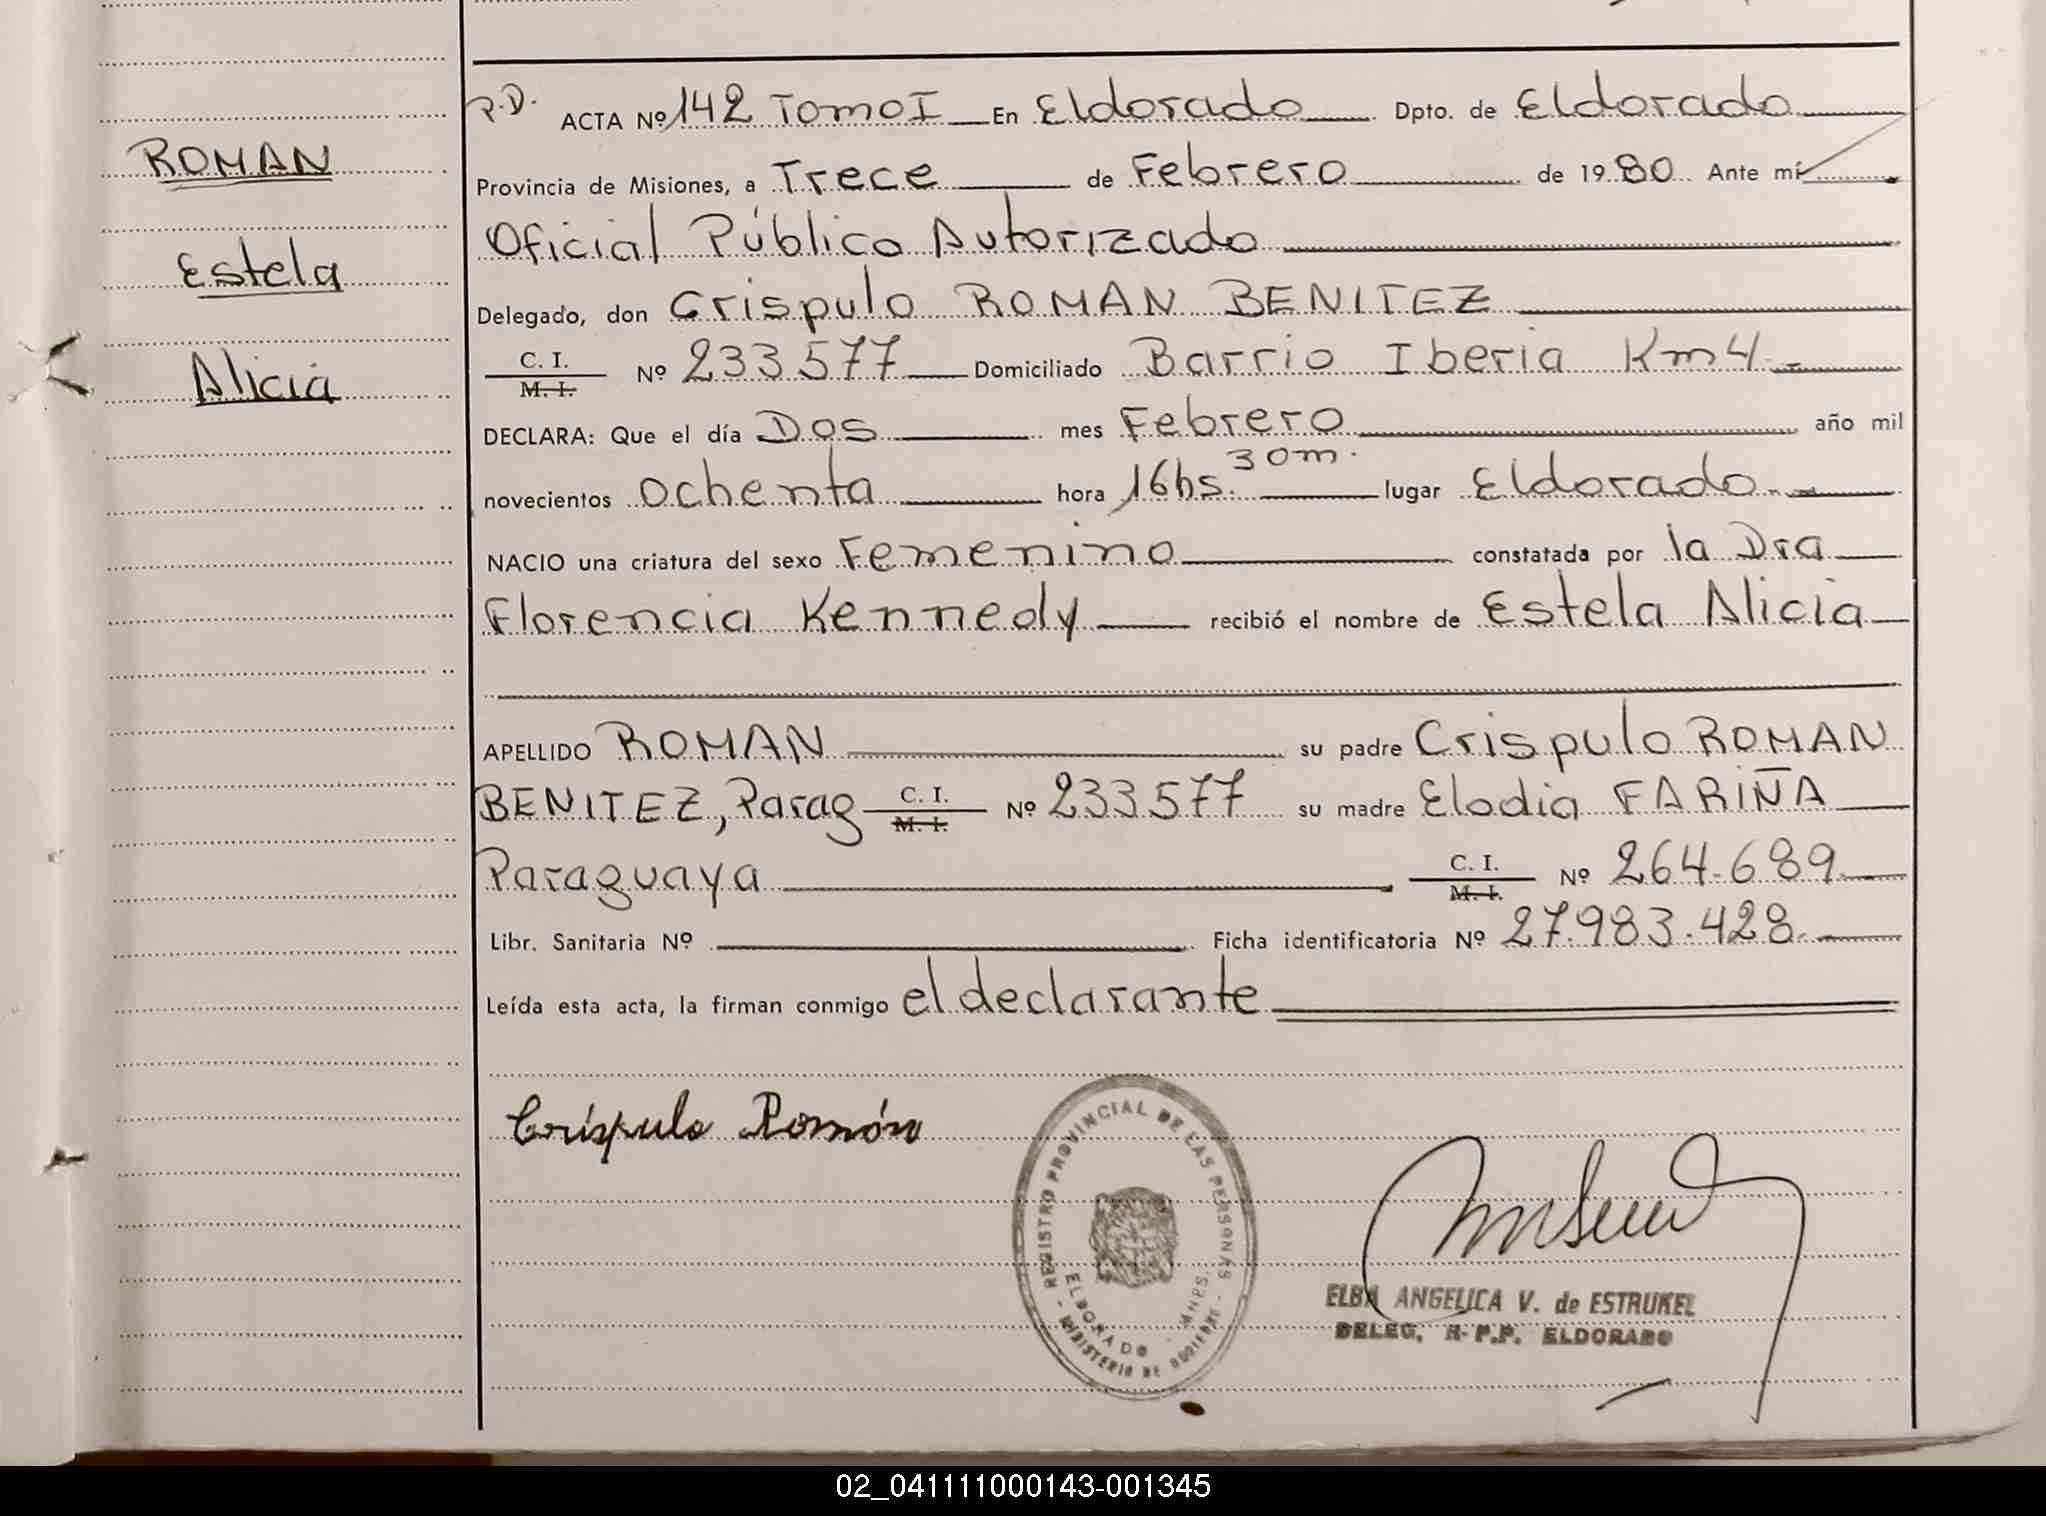 ROMAN
Estela
Alicia
P.D. ACTA Nº 142 Tomo I En Eldorado Dpto. de Eldorado
Provincia de Misiones, a Trece de Febrero de 1980 Ante mí
Oficial Público Autorizado
Delegado, don Crispulo ROMAN BENITEZ
C. I.
M. I.
Nº 233577 Domiciliado Barrio Iberia Km 4
DECLARA: Que el día Dos mes Febrero año mil
novecientos ochenta hora 16hs. 30m. lugar Eldorado
NACIO una criatura del sexo Femenino constatada por la Dra
Florencia Kennedy recibió el nombre de Estela Alicia
APELLIDO ROMAN su padre Crispulo ROMAN
BENITEZ, Parag C. I. Nº 233577 su madre Elodia FARIÑA
M. I.
Paraguaya C. I. Nº 264.689
M. I.
Libr. Sanitaria Nº Ficha identificatoria Nº 27.983.428
Leída esta acta, la firman conmigo el declarante
Críspulo Román
REGISTRO PROVINCIAL DE LAS PERSONAS
ELDORADO - MNES.
MINISTERIO DE GOBIERNO
ELBA ANGELICA V. de ESTRUKEL
DELEG. R. P.P. ELDORADO
02_041111000143-001345